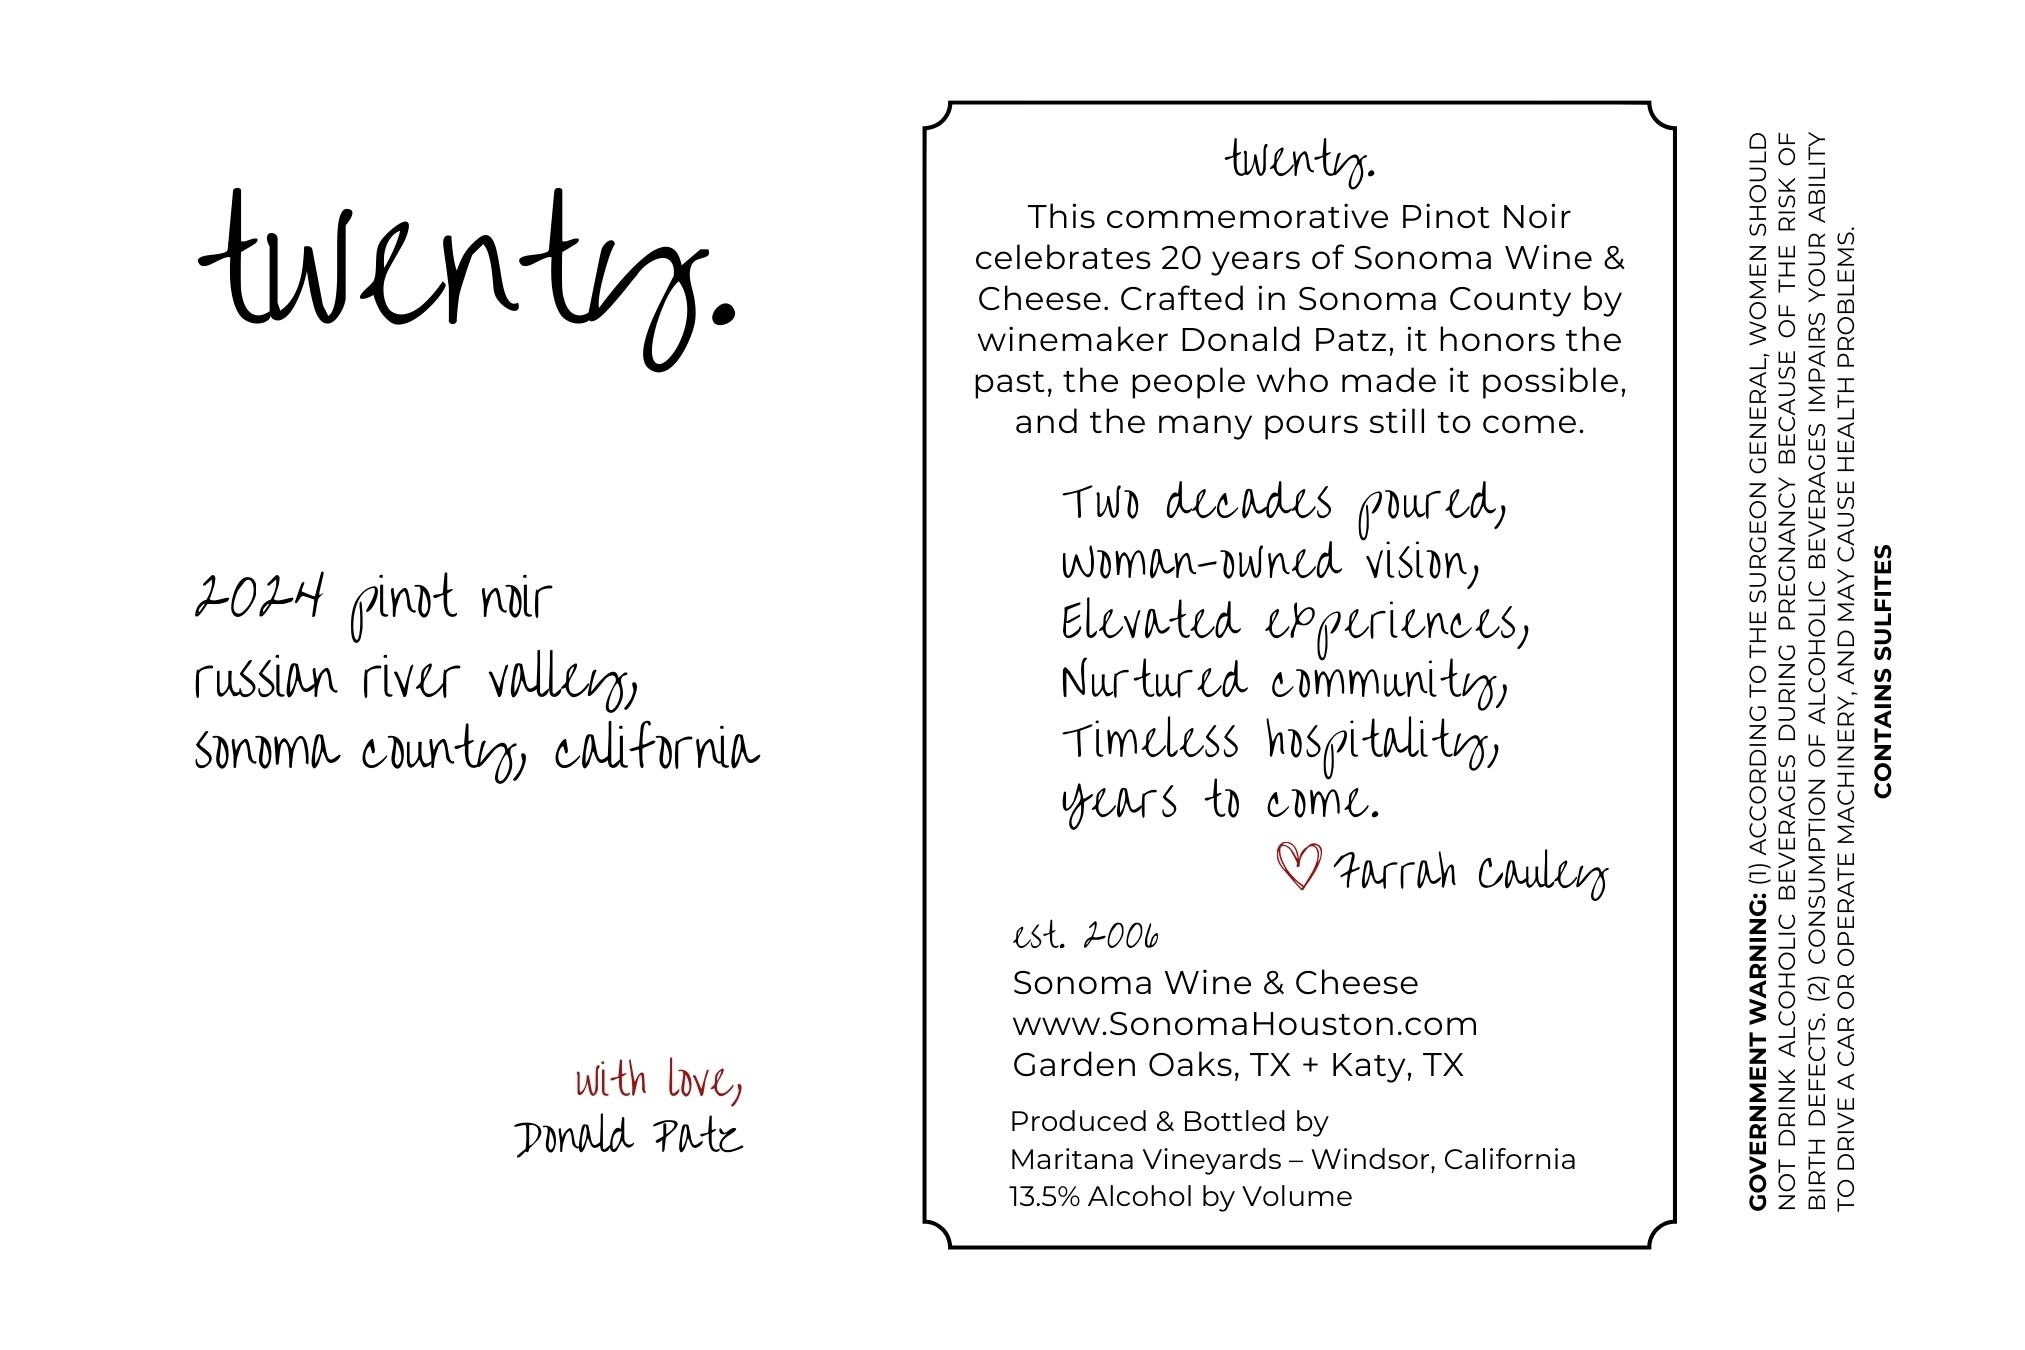 twenty.
2024 pinot noir
russian river valley,
sonoma county, california
with love,
Donald Patz
twenty.
This commemorative Pinot Noir
celebrates 20 years of Sonoma Wine &
Cheese. Crafted in Sonoma County by
winemaker Donald Patz, it honors the
past, the people who made it possible,
and the many pours still to come.
Two decades poured,
Woman-owned vision,
Elevated experiences,
Nurtured community,
Timeless hospitality,
Years to come.
Farrah Cauley
est. 2006
Sonoma Wine & Cheese
www.SonomaHouston.com
Garden Oaks, TX + Katy, TX
Produced & Bottled by
Maritana Vineyards – Windsor, California
13.5% Alcohol by Volume
GOVERNMENT WARNING: (1) ACCORDING TO THE SURGEON GENERAL, WOMEN SHOULD
NOT DRINK ALCOHOLIC BEVERAGES DURING PREGNANCY BECAUSE OF THE RISK OF
BIRTH DEFECTS. (2) CONSUMPTION OF ALCOHOLIC BEVERAGES IMPAIRS YOUR ABILITY
TO DRIVE A CAR OR OPERATE MACHINERY, AND MAY CAUSE HEALTH PROBLEMS.
CONTAINS SULFITES